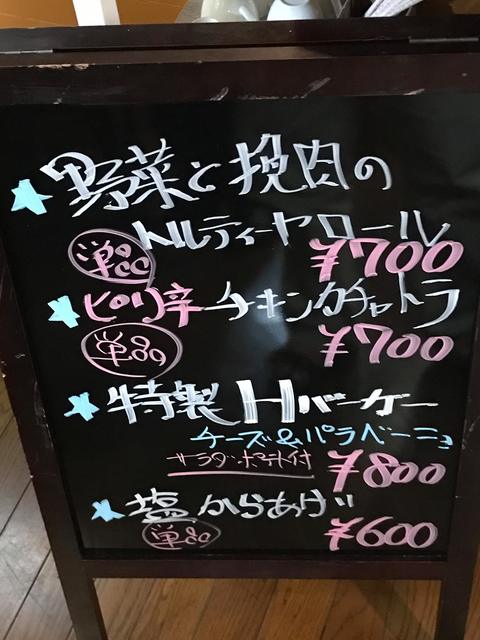 野菜と挽肉の
トルティーヤロール
¥700
ピリ辛チキンカチャトラ
¥700
特製Hバーガー
チーズ&パラペーニョ
サラダ・ポテト付
¥800
塩からあげ
¥600